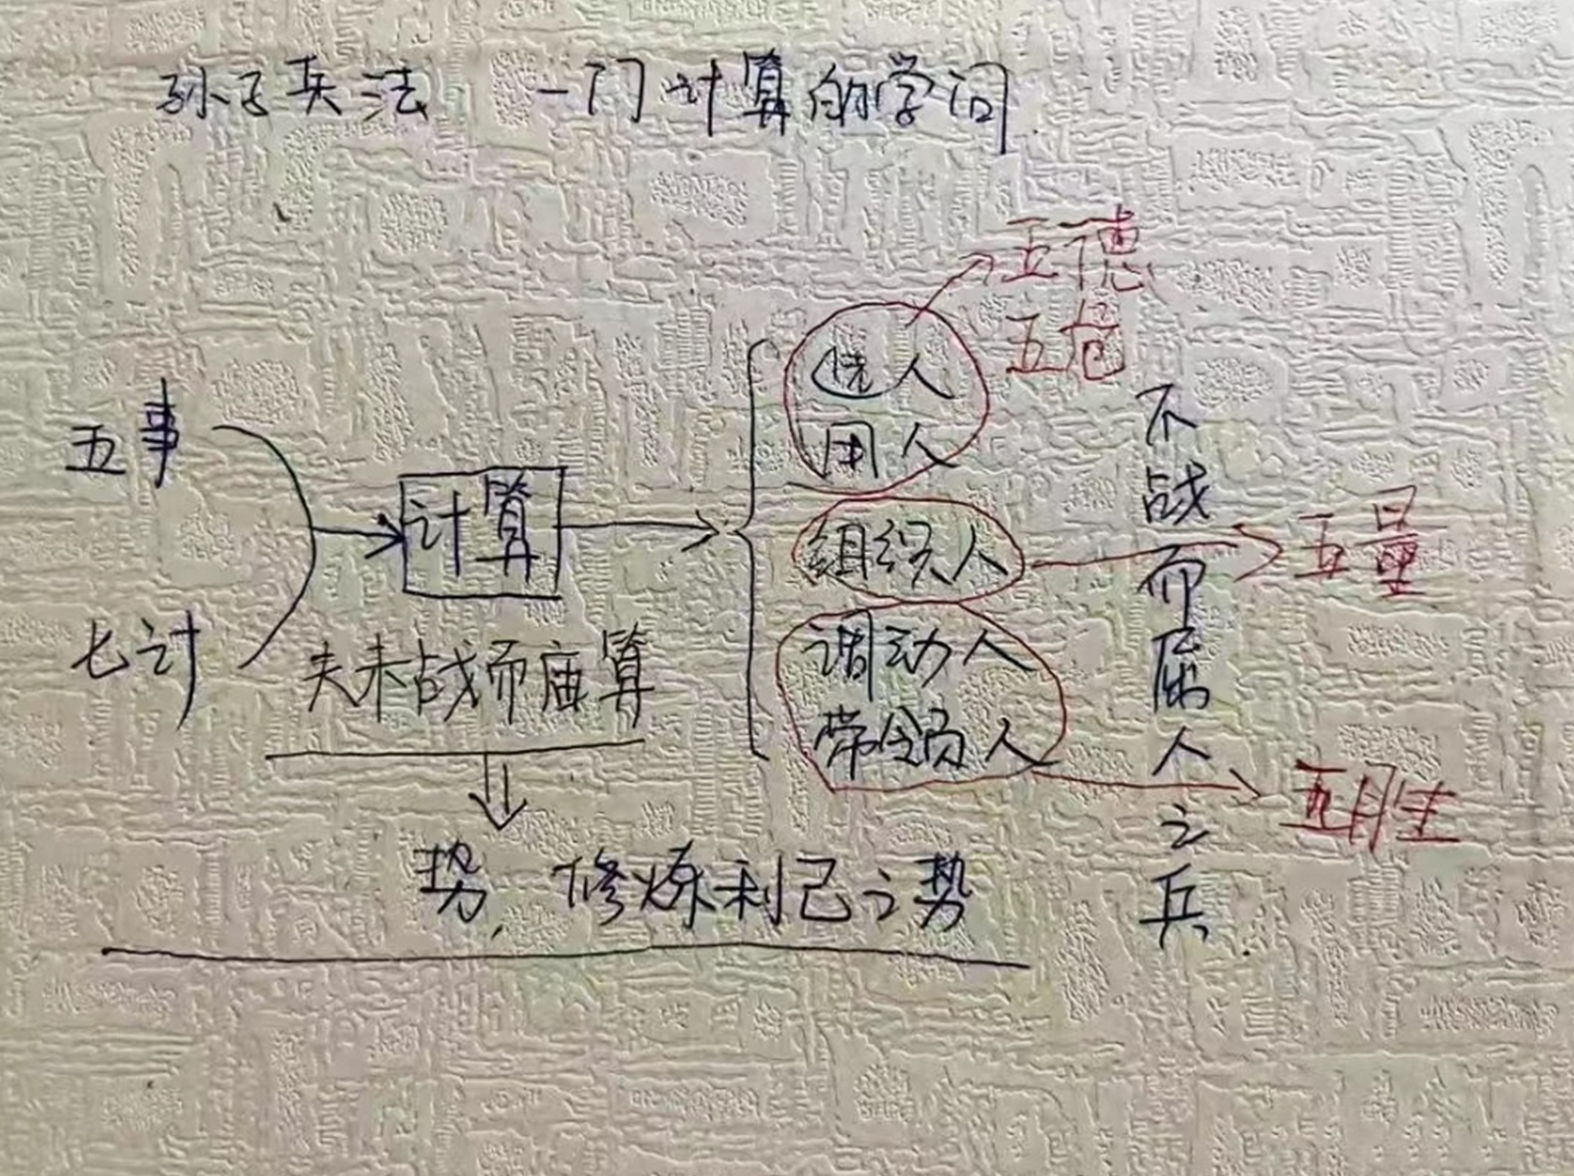 孙子兵法 一门计算的学问
五德
五危
选人
用人
五事
计算
组织人
五量
七计
夫未战而庙算
调动人
带领人
五胜
势,修炼利己之势
不战而屈人之兵